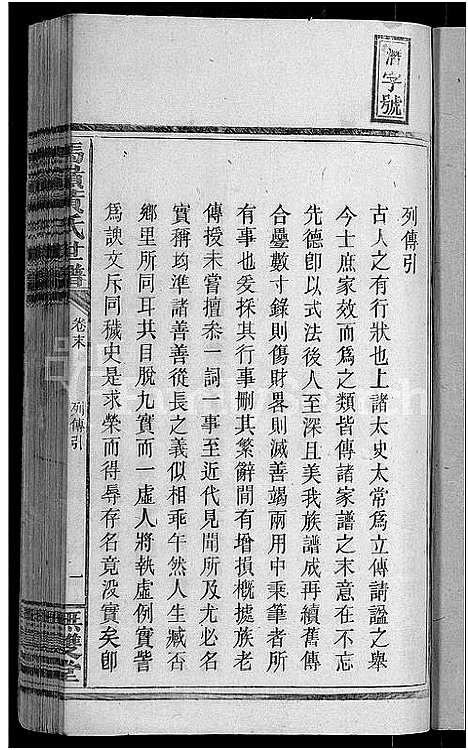 濟字號
列傳引
古人之有行狀也上諸太史太常爲立傳請諡之舉
今士庶家效而爲之類皆傳諸家譜之末意在不忘
先德卽以式法後人至深且美我族譜成再續舊傳
合疊數寸錄則傷財畧則滅善竭兩用中秉筆者所
有事也爰採其行事刪其繁辭間有增損槪據族老
傳授未嘗擅叅一詞一事至近代見聞所及尤必名
實稱均準諸善善從長之義似相乖午然人生臧否
鄉里所同耳共目脫九實而一虛人將執虛例實訾
爲諛文斥同穢史是求榮而得辱存名竟沒實矣卽
黃氏世譜
卷末
列傳引
一
無雙堂